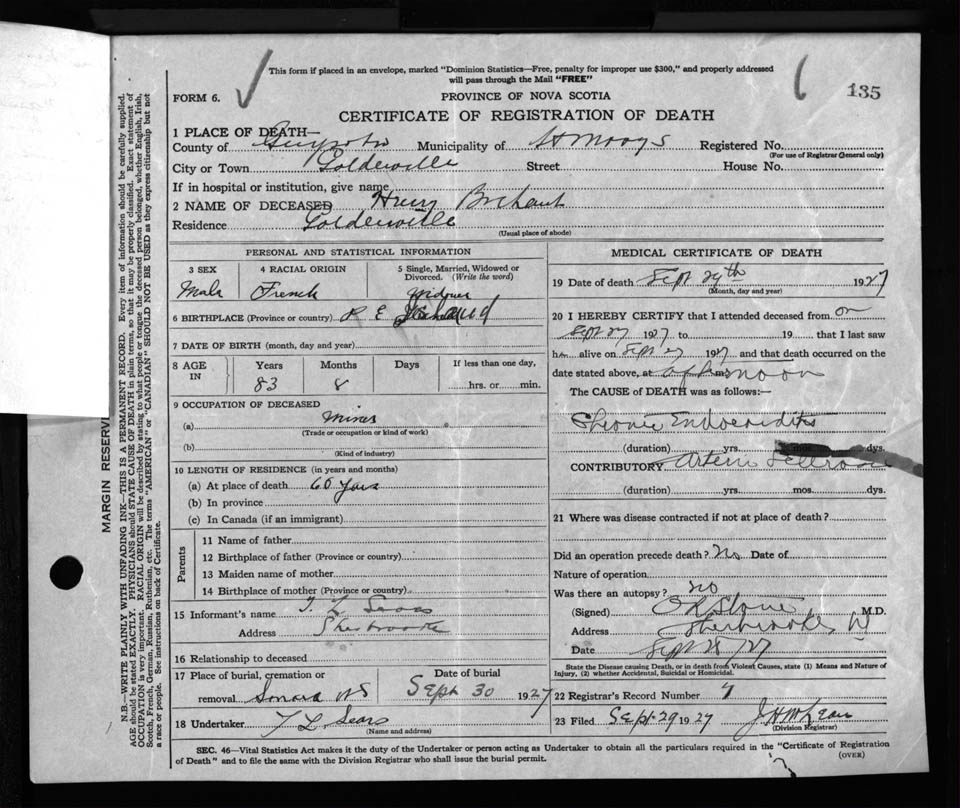 This form if placed in an envelope, marked "Dominion Statistics—Free, penalty for improper use $300," and properly addressed
will pass through the Mail "FREE"
135
FORM 6.
PROVINCE OF NOVA SCOTIA
CERTIFICATE OF REGISTRATION OF DEATH
1 PLACE OF DEATH—
County of Guysboro Municipality of St Marys Registered No.
(For use of Registrar General only)
City or Town Goldenville Street House No.
If in hospital or institution, give name
2 NAME OF DECEASED Henry
Residence Goldenville
(Usual place of abode)
PERSONAL AND STATISTICAL INFORMATION
3 SEX 4 RACIAL ORIGIN 5 Single, Married, Widowed or
Divorced. (Write the word)
Male French Widower
6 BIRTHPLACE (Province or country) P E Island
7 DATE OF BIRTH (month, day and year)
8 AGE IN Years Months Days If less than one day,
83 8 hrs. or min.
9 OCCUPATION OF DECEASED
(a) Miner
(Trade or occupation or kind of work)
(b)
(Kind of industry)
10 LENGTH OF RESIDENCE (in years and months)
(a) At place of death 60 Years
(b) In province
(c) In Canada (if an immigrant)
Parents
11 Name of father
12 Birthplace of father (Province or country)
13 Maiden name of mother
14 Birthplace of mother (Province or country)
15 Informant's name T. L Sears
Address Sherbrooke
16 Relationship to deceased
17 Place of burial, cremation or Date of burial
removal Sonora NS Sept 30 1927
18 Undertaker T L Sears
(Name and address)
MEDICAL CERTIFICATE OF DEATH
19 Date of death Sept 29th 1927
(Month, day and year)
20 I HEREBY CERTIFY that I attended deceased from on
Sept 27 1927 to 19 that I last saw
him alive on Sept 27 1927 and that death occurred on the
date stated above, at afternoon
The CAUSE of DEATH was as follows:—
Chronic Endocarditis
(duration) yrs. mos. dys.
CONTRIBUTORY Arterio Sclerosis
(duration) yrs. mos. dys.
21 Where was disease contracted if not at place of death?
Did an operation precede death? No Date of
Nature of operation
Was there an autopsy? no
(Signed) M.D.
Address Sherbrooke
Date Sept 28 27
State the Disease causing Death, or in death from Violent Causes, state (1) Means and Nature of
Injury, (2) whether Accidental, Suicidal or Homicidal.
22 Registrar's Record Number 7
23 Filed Sept 29 1927 J H McLean
(Division Registrar)
SEC. 46—Vital Statistics Act makes it the duty of the Undertaker or person acting as Undertaker to obtain all the particulars required in the "Certificate of Registration
of Death" and to file the same with the Division Registrar who shall issue the burial permit.
(OVER)
MARGIN RESERV
N.B.—WRITE PLAINLY WITH UNFADING INK—THIS IS A PERMANENT RECORD. Every item of information should be carefully supplied.
AGE should be stated EXACTLY. PHYSICIANS should STATE CAUSE OF DEATH in plain terms, so that it may be properly classified. Exact statement of
OCCUPATION is very important. RACIAL ORIGIN will be described by stating to what people or tongue the deceased person belonged, whether English, Irish,
Scotch, French, German, Russian, Ruthenian, etc. The terms "AMERICAN" or "CANADIAN" SHOULD NOT BE USED as they express citizenship but not
a race or people. See instructions on back of Certificate.